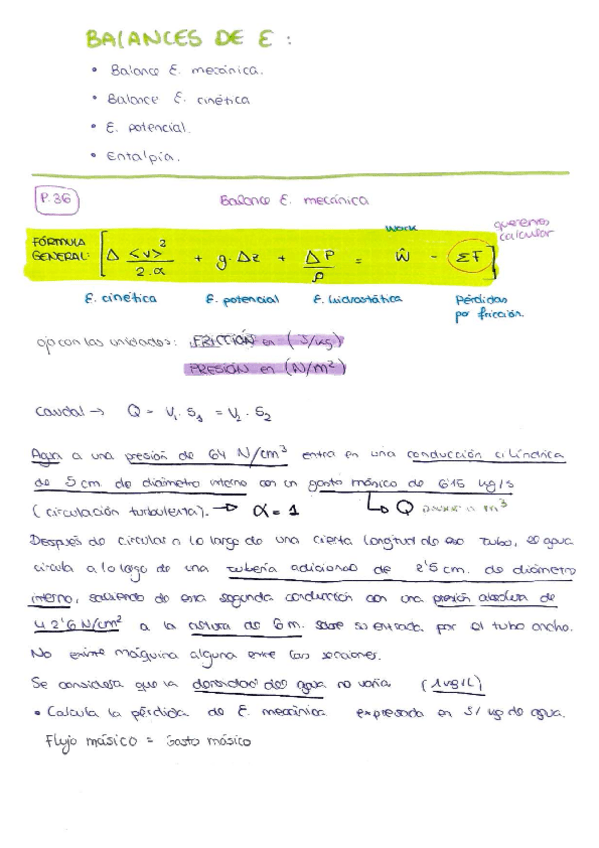 BALANCES DE E:
• Balance E. mecánica.
• Balance E. cinética
• E. potencial.
• Entalpía.
P.36 Balance E. mecánica
work queremos calcular
FÓRMULA GENERAL: [Δ <v>² / 2.α + g.Δz + ΔP / ρ = Ŵ - ΣF]
E. cinética E. potencial E. hidrostática Pérdidas por fricción.
ojo con las unidades: FRICCIÓN en (J/kg)
PRESIÓN en (N/m²)
caudal → Q = V₁.S₁ = V₂.S₂
Agua a una presión de 64 N/cm³ entra en una conducción cilíndrica
de 5 cm. de diámetro interno con un gasto másico de 6'15 kg/s
(circulación turbulenta). → α = 1 ↳ Q m³
Después de circular a lo largo de una cierta longitud de ese tubo, el agua
circula a lo largo de una tubería adicional de 2'5 cm. de diámetro
interno, saliendo de esa segunda conducción con una presión absoluta de
42'6 N/cm² a la altura de 6 m. sobre su entrada por el tubo ancho.
No existe máquina alguna entre las secciones.
Se considera que la densidad del agua no varía (1 kg/L)
• Calcula la pérdida de E. mecánica expresada en J/kg de agua.
Flujo másico = Gasto másico